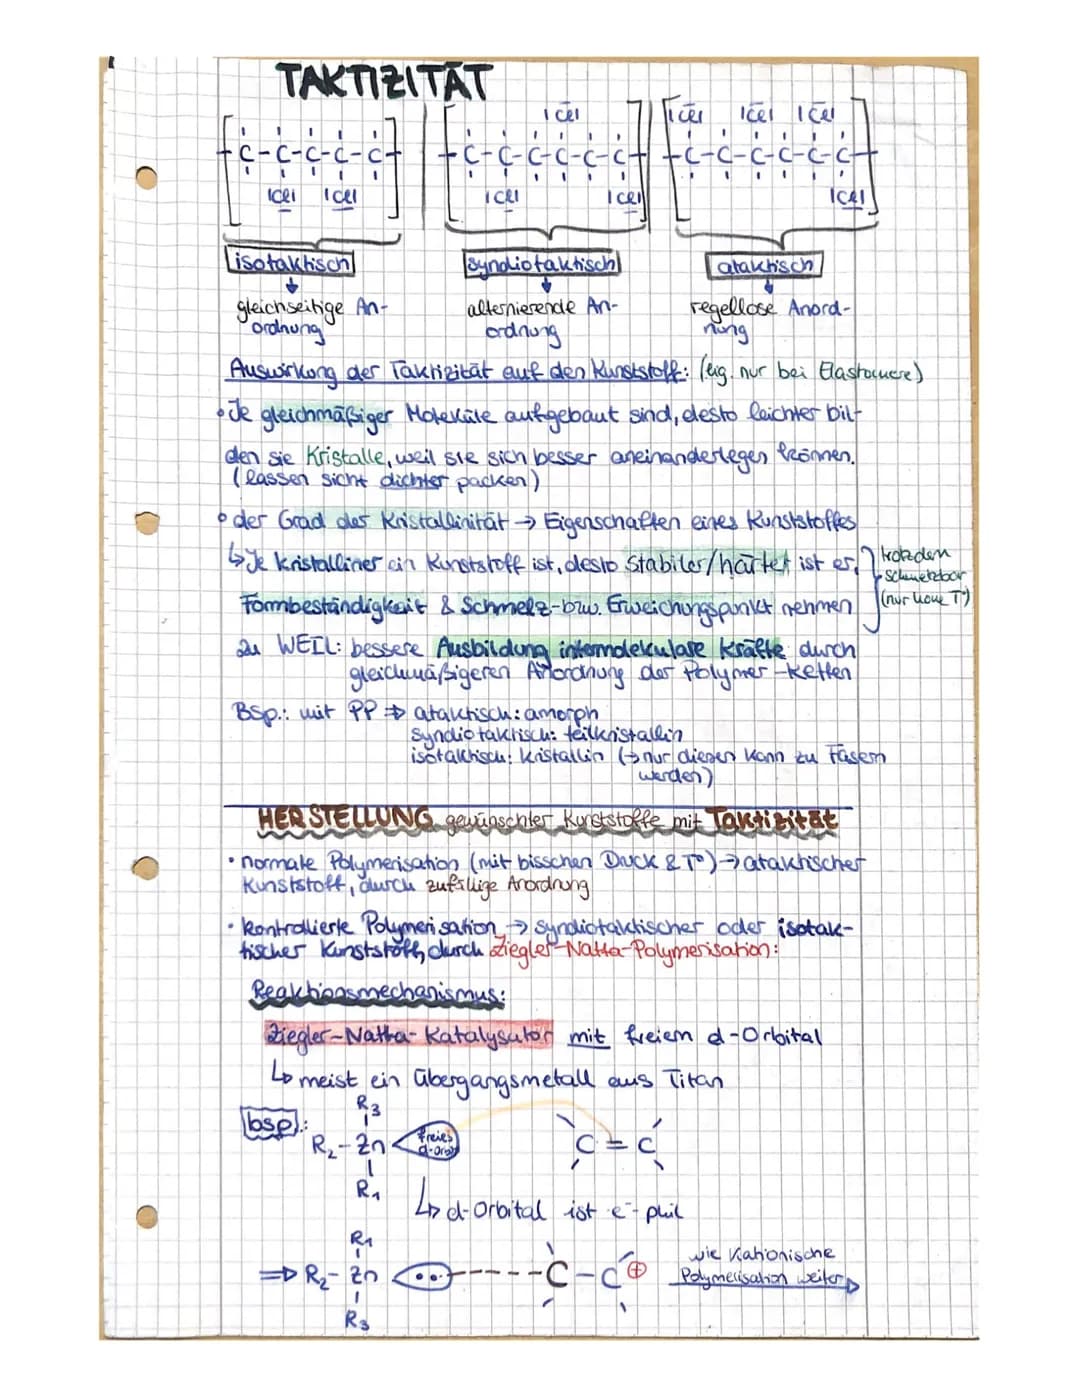 TAKTIZITÄT
|C̅l| |C̅l| |C̅l| |C̅l|
C-C-C-C-C C-C-C-C-C-C C-C-C-C-C-C
|Cl| |Cl| |Cl| |Cl| |Cl|
isotaktisch syndiotaktisch ataktisch
gleichseitige An- alternierende An- regellose Anord-
ordnung ordnung nung
Auswirkung der Taktizität auf den Kunststoff: (eig. nur bei Elastomere)
• Je gleichmäßiger Moleküle aufgebaut sind, desto leichter bil-
den sie Kristalle, weil sie sich besser aneinanderlegen können.
(lassen sicht dichter packen)
• der Grad der Kristallinität → Eigenschaften eines Kunststoffes
↳ Je kristalliner ein Kunststoff ist, desto stabiler/härter ist er,
Formbeständigkeit & Schmelz- bzw. Erweichungspunkt nehmen
trotzdem
schmelzbar
(nur hohe T°)
zu WEIL: bessere Ausbildung intermolekulare Kräfte durch
gleichmäßigeren Anordnung der Polymer-Ketten
BSp.: mit PP ⇒ ataktisch: amorph
syndiotaktisch: teilkristallin
isotaktisch: kristallin (→ nur diesen kann zu Fasern
werden)
HERSTELLUNG gewünschter Kunststoffe mit Taktizität
• normale Polymerisation (mit bisschen Druck & T°) → ataktischer
Kunststoff, durch zufällige Anordnung
• kontrollierte Polymerisation → syndiotaktischer oder isotak-
tischer Kunststoff, durch Ziegler-Natta-Polymerisation:
Reaktionsmechanismus:
Ziegler-Natta-Katalysator mit freiem d-Orbital
↳ meist ein Übergangsmetall aus Titan
bsp.:
R₃
R₂-Zn freies d-Orbi C=C
R₁
↳ d-Orbital ist e⁻-phil
R₁
⇒ R₂-Zn ·· ----C-C⊕ wie Kationische
Polymerisation weiter
R₃